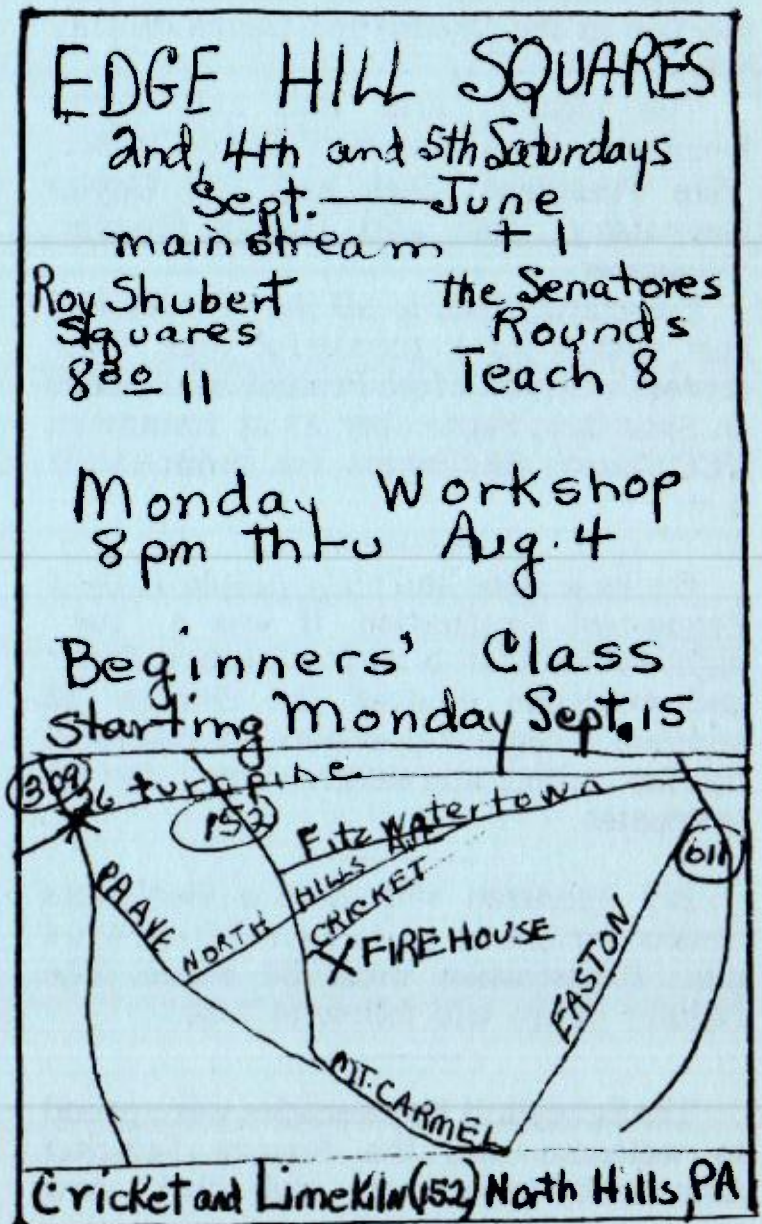 EDGE HILL SQUARES
2nd, 4th and 5th Saturdays
Sept. — June
mainstream + 1
Roy Shubert
Squares
8³⁰ – 11
the Senatores
Rounds
Teach 8
Monday Workshop
8pm thru Aug. 4
Beginners' Class
Starting Monday Sept. 15
309
26 turnpike
152
Fitzwatertown
611
PA AVE
NORTH HILLS AVE
CRICKET
X FIREHOUSE
EASTON
MT. CARMEL
Cricket and Limekiln (152) North Hills, PA